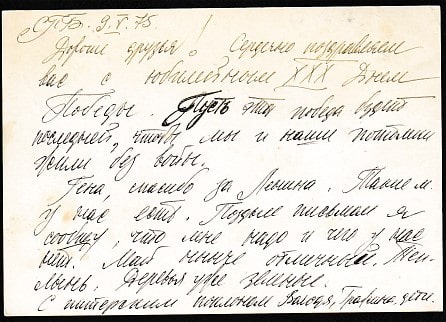 СПБ. 9.V.75
Дорогие друзья! Сердечно поздравляем
вас с юбилейным XXX Днем
Победы. Пусть эта победа будет
последней, чтобы мы и наши потомки
жили без войны.
Гена, спасибо за Ленина. Такие м.
у нас есть. Поздне письмам я
сообщу, что мне надо и чего у нас
нет. Май ныне отличный. Теп-
лынь. Деревья уже зеленые.
С питерским поклоном Володя, дети.